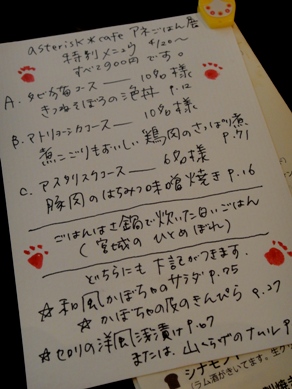 asterisk*cafe アネごはん展
特別メニュウ 4/20〜
すべて900円です。
A. タビカ猫コース── 10名様
きつねそぼろの滝丼 P.12
B. アトリョーシカコース── 10名様
煮こごりもおいしい 鶏肉のさっぱり煮 P.71
C. アスタリスクコース── 6名様
豚肉のはちみつ味噌焼き P.16
ごはんは土鍋で炊いた白いごはん
(宮城のひとめぼれ)
どちらにも下記がつきます。
☆和風かぼちゃのサラダ P.75
☆かぼちゃの皮のきんぴら P.27
☆セロリの洋風浅漬け P.67
または、山くらげのナムル P
シナモン
(ラム酒がきいてます。生ク